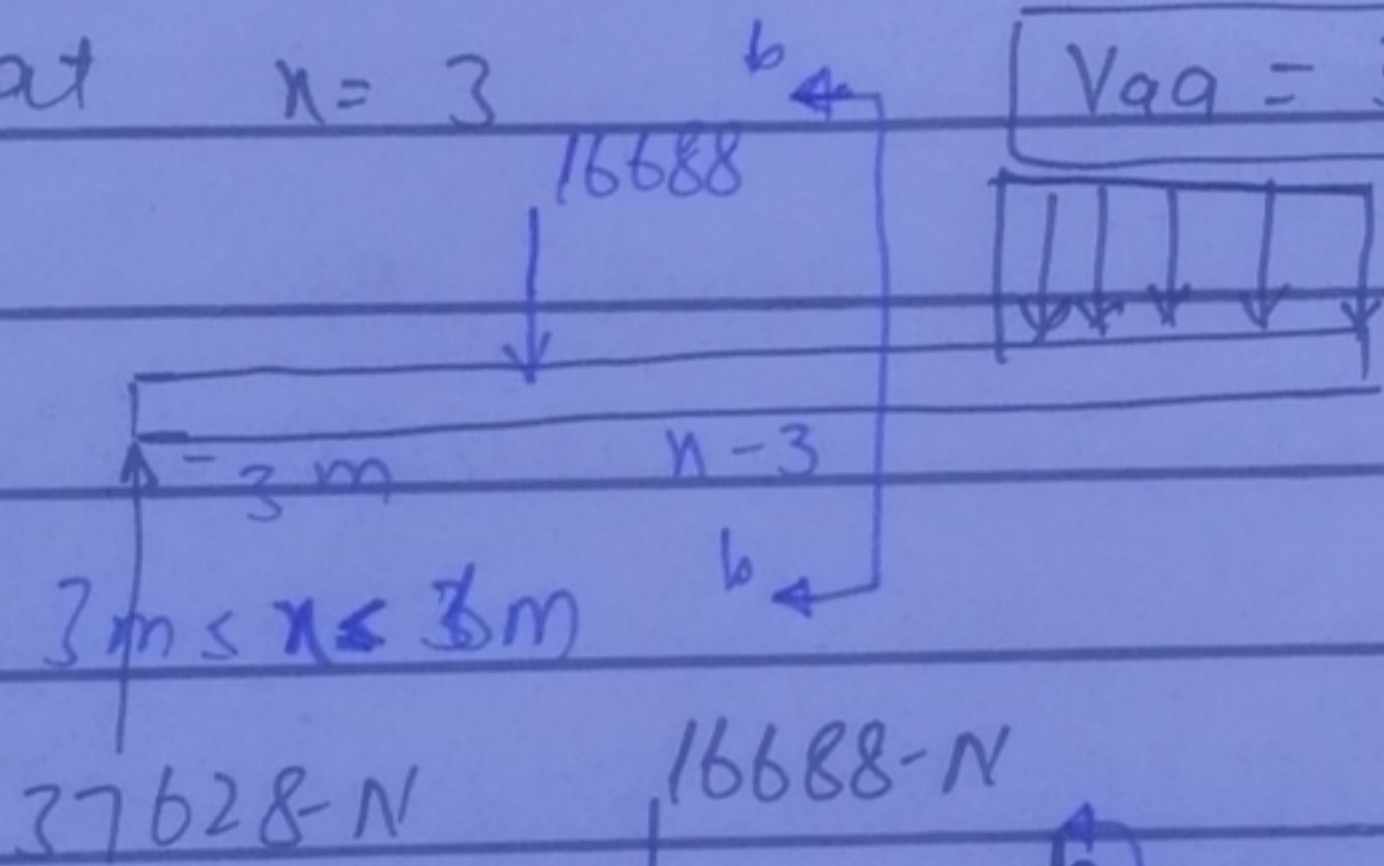 at x = 3
b
Vaa =
16688
3 m
x - 3
b
3m ≤ x ≤ 6m
16688-N
37628-N